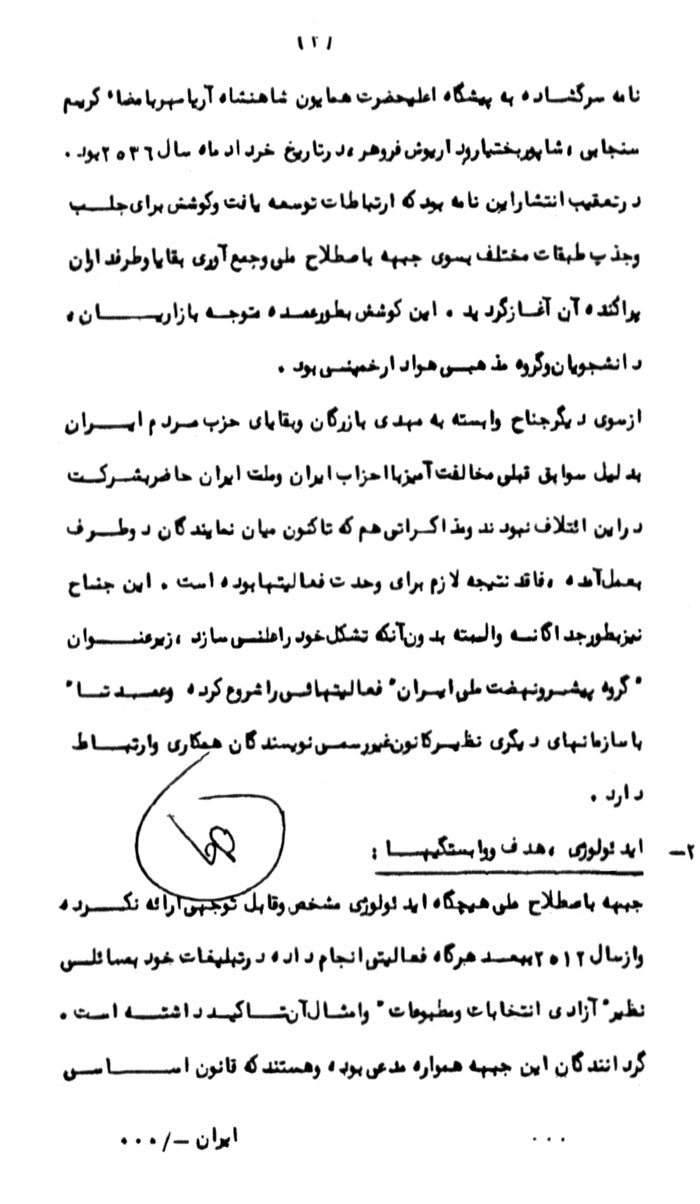 (۲)
نامه سرگشاده به پیشگاه اعلیحضرت همایون شاهنشاه آریامهر بامضاء کریم
سنجابی ، شاپور بختیار و داریوش فروهر ، در تاریخ خرداد ماه سال ۲۵۳۶ بود .
در تعقیب انتشار این نامه بود که ارتباطات توسعه یافت و کوشش برای جلب
و جذب طبقات مختلف بسوی جبهه باصطلاح ملی و جمع آوری بقایا و طرفداران
پراکنده آن آغاز گردید . این کوشش بطور عمده متوجه بازاریان ،
دانشجویان و گروه مذهبی هوادار خمینی بود .
از سوی دیگر جناح وابسته به مهدی بازرگان و بقایای حزب مردم ایران
بدلیل سوابق قبلی مخالفت آمیز با احزاب ایران و ملت ایران حاضر بشرکت
در این ائتلاف نبودند و مذاکراتی هم که تاکنون میان نمایندگان دو طرف
بعمل آمده ، فاقد نتیجه لازم برای وحدت فعالیتها بوده است . این جناح
نیز بطور جداگانه و البته بدون آنکه تشکل خود را علنی سازد ، زیر عنوان
" گروه پیشرو نهضت ملی ایران " فعالیتهائی را شروع کرده و عمدتا "
با سازمانهای دیگری نظیر کانون غیر رسمی نویسندگان همکاری و ارتباط
دارد .
۲- ایدئولوژی ، هدف و وابستگیها :
جبهه باصطلاح ملی هیچگاه ایدئولوژی مشخص و قابل توجهی ارائه نکرده
و از سال ۲۵۱۲ ببعد هرگاه فعالیتی انجام داده در تبلیغات خود بمسائلی
نظیر " آزادی انتخابات و مطبوعات " و امثال آن تاکید داشته است .
گردانندگان این جبهه همواره مدعی بوده و هستند که قانون اساسی
... ایران -/۰۰۰